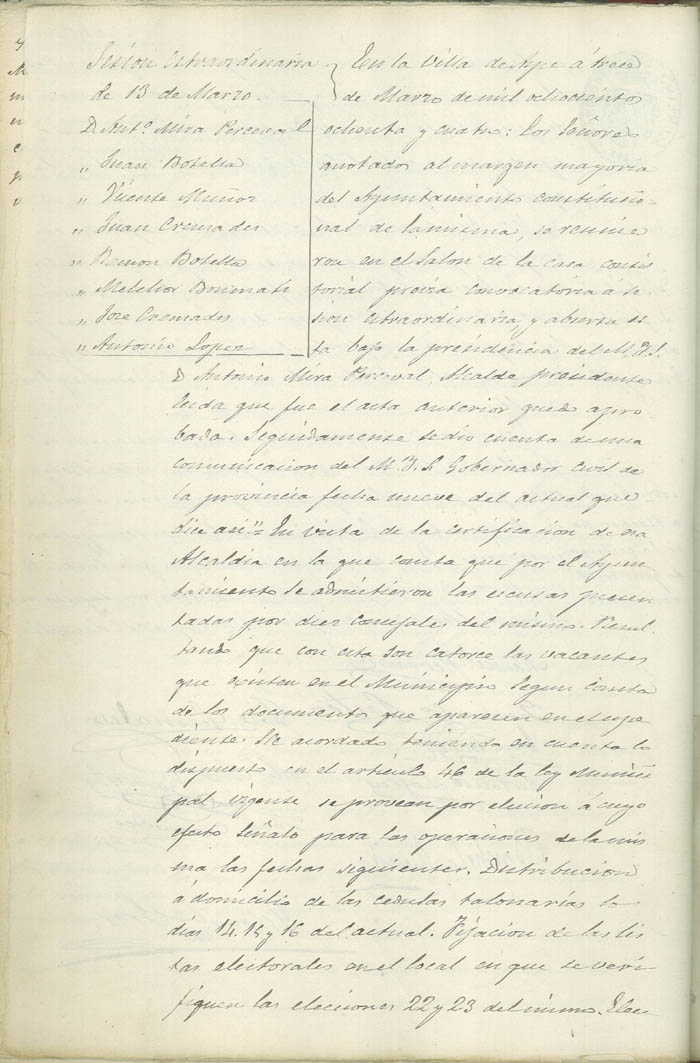 Sesion extraordinaria
de 13 de Marzo.
D. Antº. Mira Perceval
" Juan Botella
" Vicente Muñoz
" Juan Cremades
" Ramon Botella
" Melchor Bonmati
" Jose Cremades
" Antonio Lopez
En la Villa de Aspe á trece
de Marzo de mil ochocientos
ochenta y cuatro: Los Señores
anotados al margen mayoria
del Ayuntamiento constitucio
nal de la misma, se reunie
ron en el Salon de la casa consis
torial previa convocatoria á se
sion extraordinaria, y abierta es
ta bajo la presidencia del M. Y. S.
D Antonio Mira Perceval, Alcalde presidente
leida que fue el acta anterior quedó apro
bada. Seguidamente se dio cuenta de una
comunicacion del M. Y. S. Gobernador Civil de
la provincia fecha nueve del actual que
dice asi: "En vista de la certificacion de esa
Alcaldia en la que consta que por el Ayun
tamiento se admitieron las escusas presen
tadas por dies concejales del mismo. Resul
tando que con esta son catorce las vacantes
que existen en el Municipio segun consta
de los documento que aparecen en el espe
diente. He acordado teniendo en cuenta lo
dispuesto en el articulo 46 de la ley Munici
pal vigente se provean por eleccion á cuyo
efecto Señalo para las operaciones de la mis
ma las fechas siguientes. Distribucion
á domicilio de las cedulas talonarias lo
dias 14. 15 y 16 del actual. Fijacion de las lis
tas electorales en el local en que se veri
fiquen las elecciones 22 y 23 del mismo. Elec